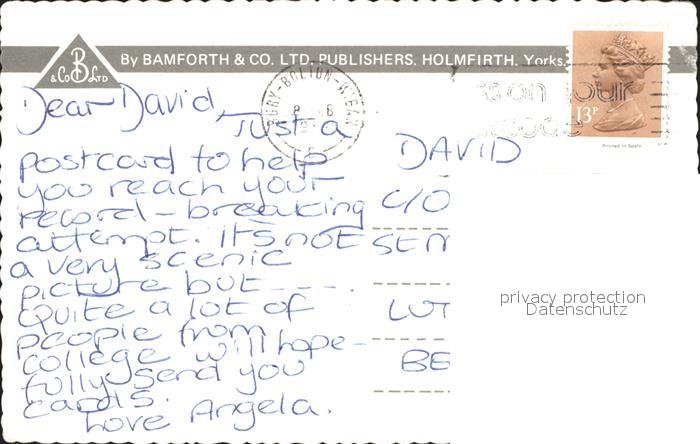 By BAMFORTH & CO. LTD. PUBLISHERS. HOLMFIRTH. Yorks.
B
& Co LTD
Dear David,
Just a
postcard to help
you reach your
record-breaking
attempt. It's not
a very scenic
picture but - - -
quite a lot of
people from
college will hope-
fully send you
cards.
Love Angela.
BURY-BOLTON-WIGAN
on your
13P
Printed in Spain
DAVID
C/O
ST M
LUT
BE
privacy protection
Datenschutz